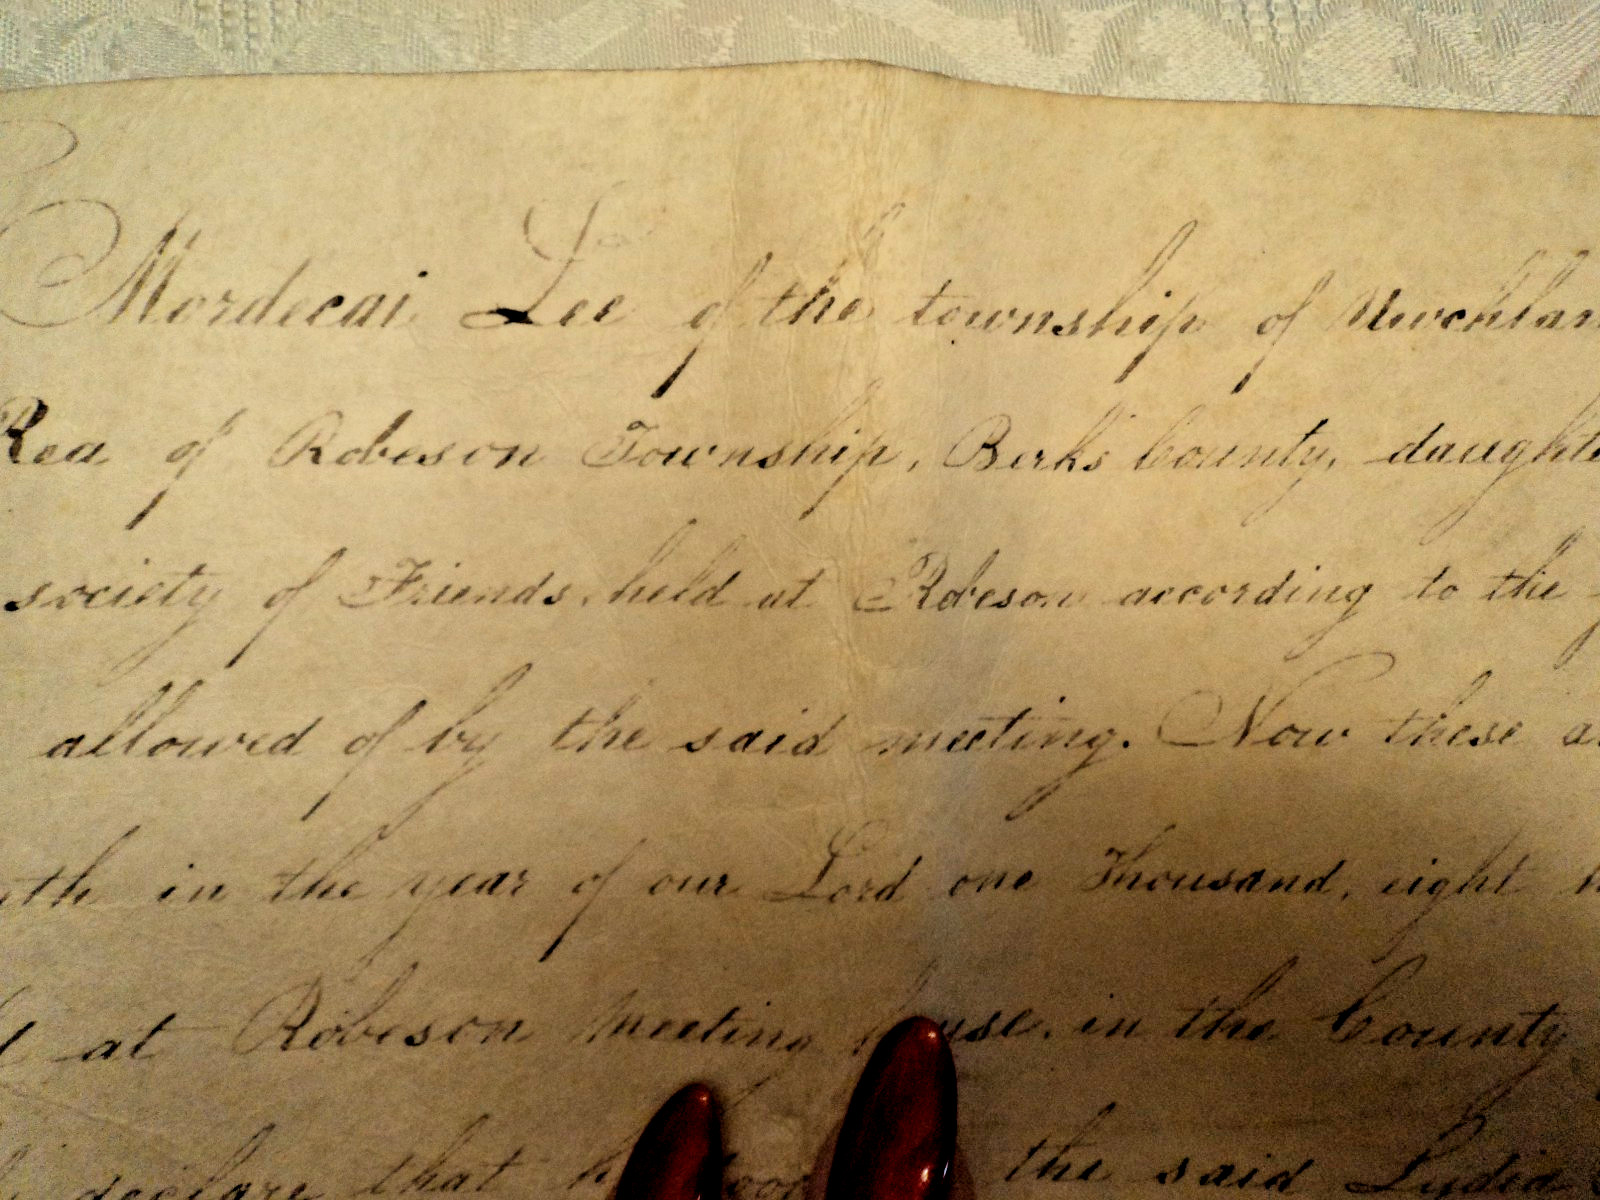 Mordecai Lee of the township of Uwchlan
Rea of Robeson Township, Berks County, daughte
society of Friends, held at Robeson according to the
allowed of by the said meeting. Now these a
th in the year of our Lord one Thousand, eight h
at Robeson Meeting house, in the County
declare that the said Lydia